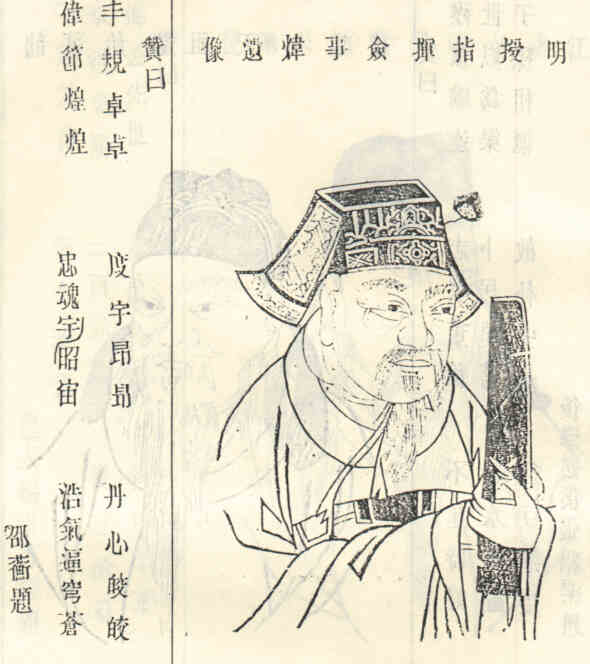 明授指揮僉事煒遺像
贊曰
丰規卓卓 度宇昂昂 丹心皎皎
偉節煌煌 忠魂宇昭宙 浩氣逼穹蒼
邵題